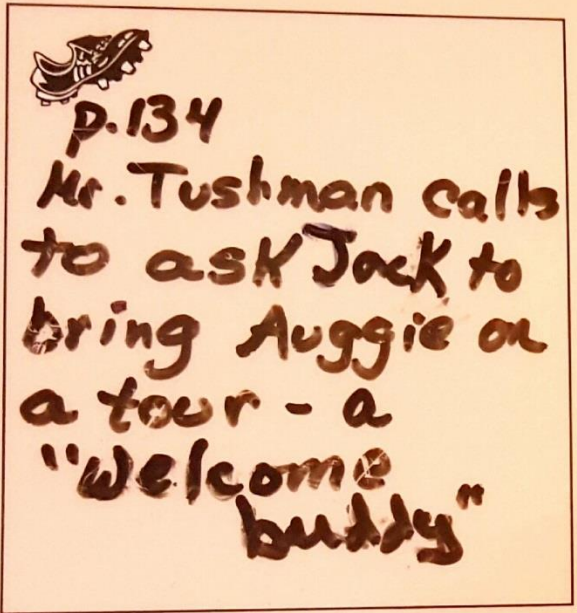 p.134
Mr. Tushman calls
to ask Jack to
bring Auggie on
a tour - a
"welcome
buddy"